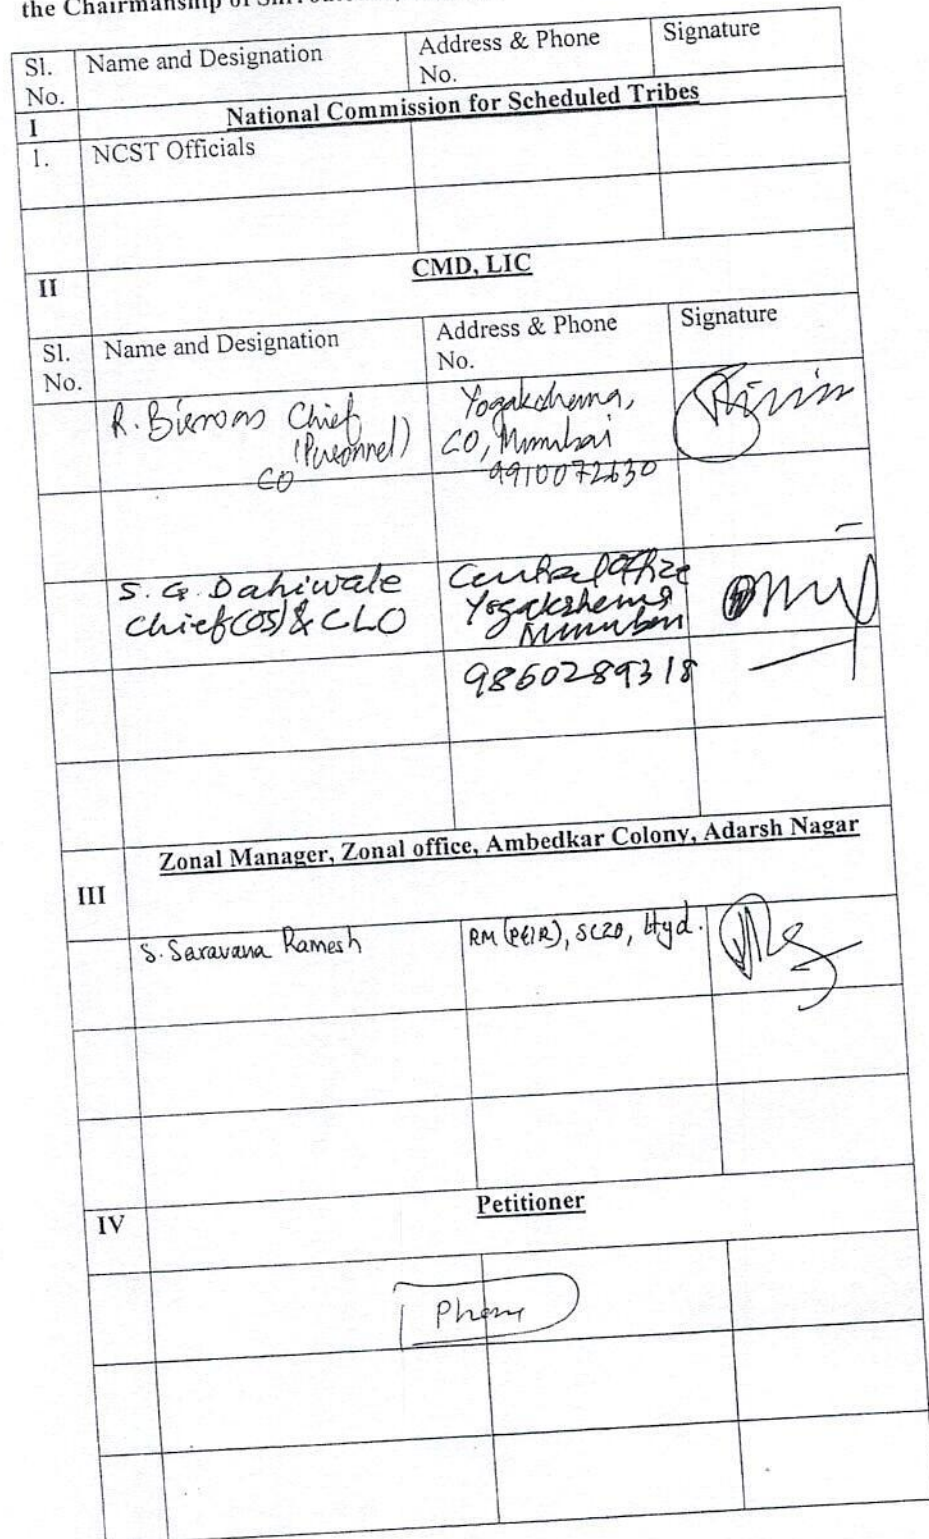 the Chairmanship of
Sl. No. Name and Designation Address & Phone No. Signature
I National Commission for Scheduled Tribes
1. NCST Officials
II CMD, LIC
Sl. No. Name and Designation Address & Phone No. Signature
R. Chief Yogakshema,
(Personnel) CO, Mumbai
CO 9910072630
S. G. Dahiwale Central Office
Chief (OS) & CLO Yogakshema
Mumbai
9860289318
Zonal Manager, Zonal office, Ambedkar Colony, Adarsh Nagar
III
S. Saravana Ramesh RM (P&IR), SCZO, Hyd.
IV Petitioner